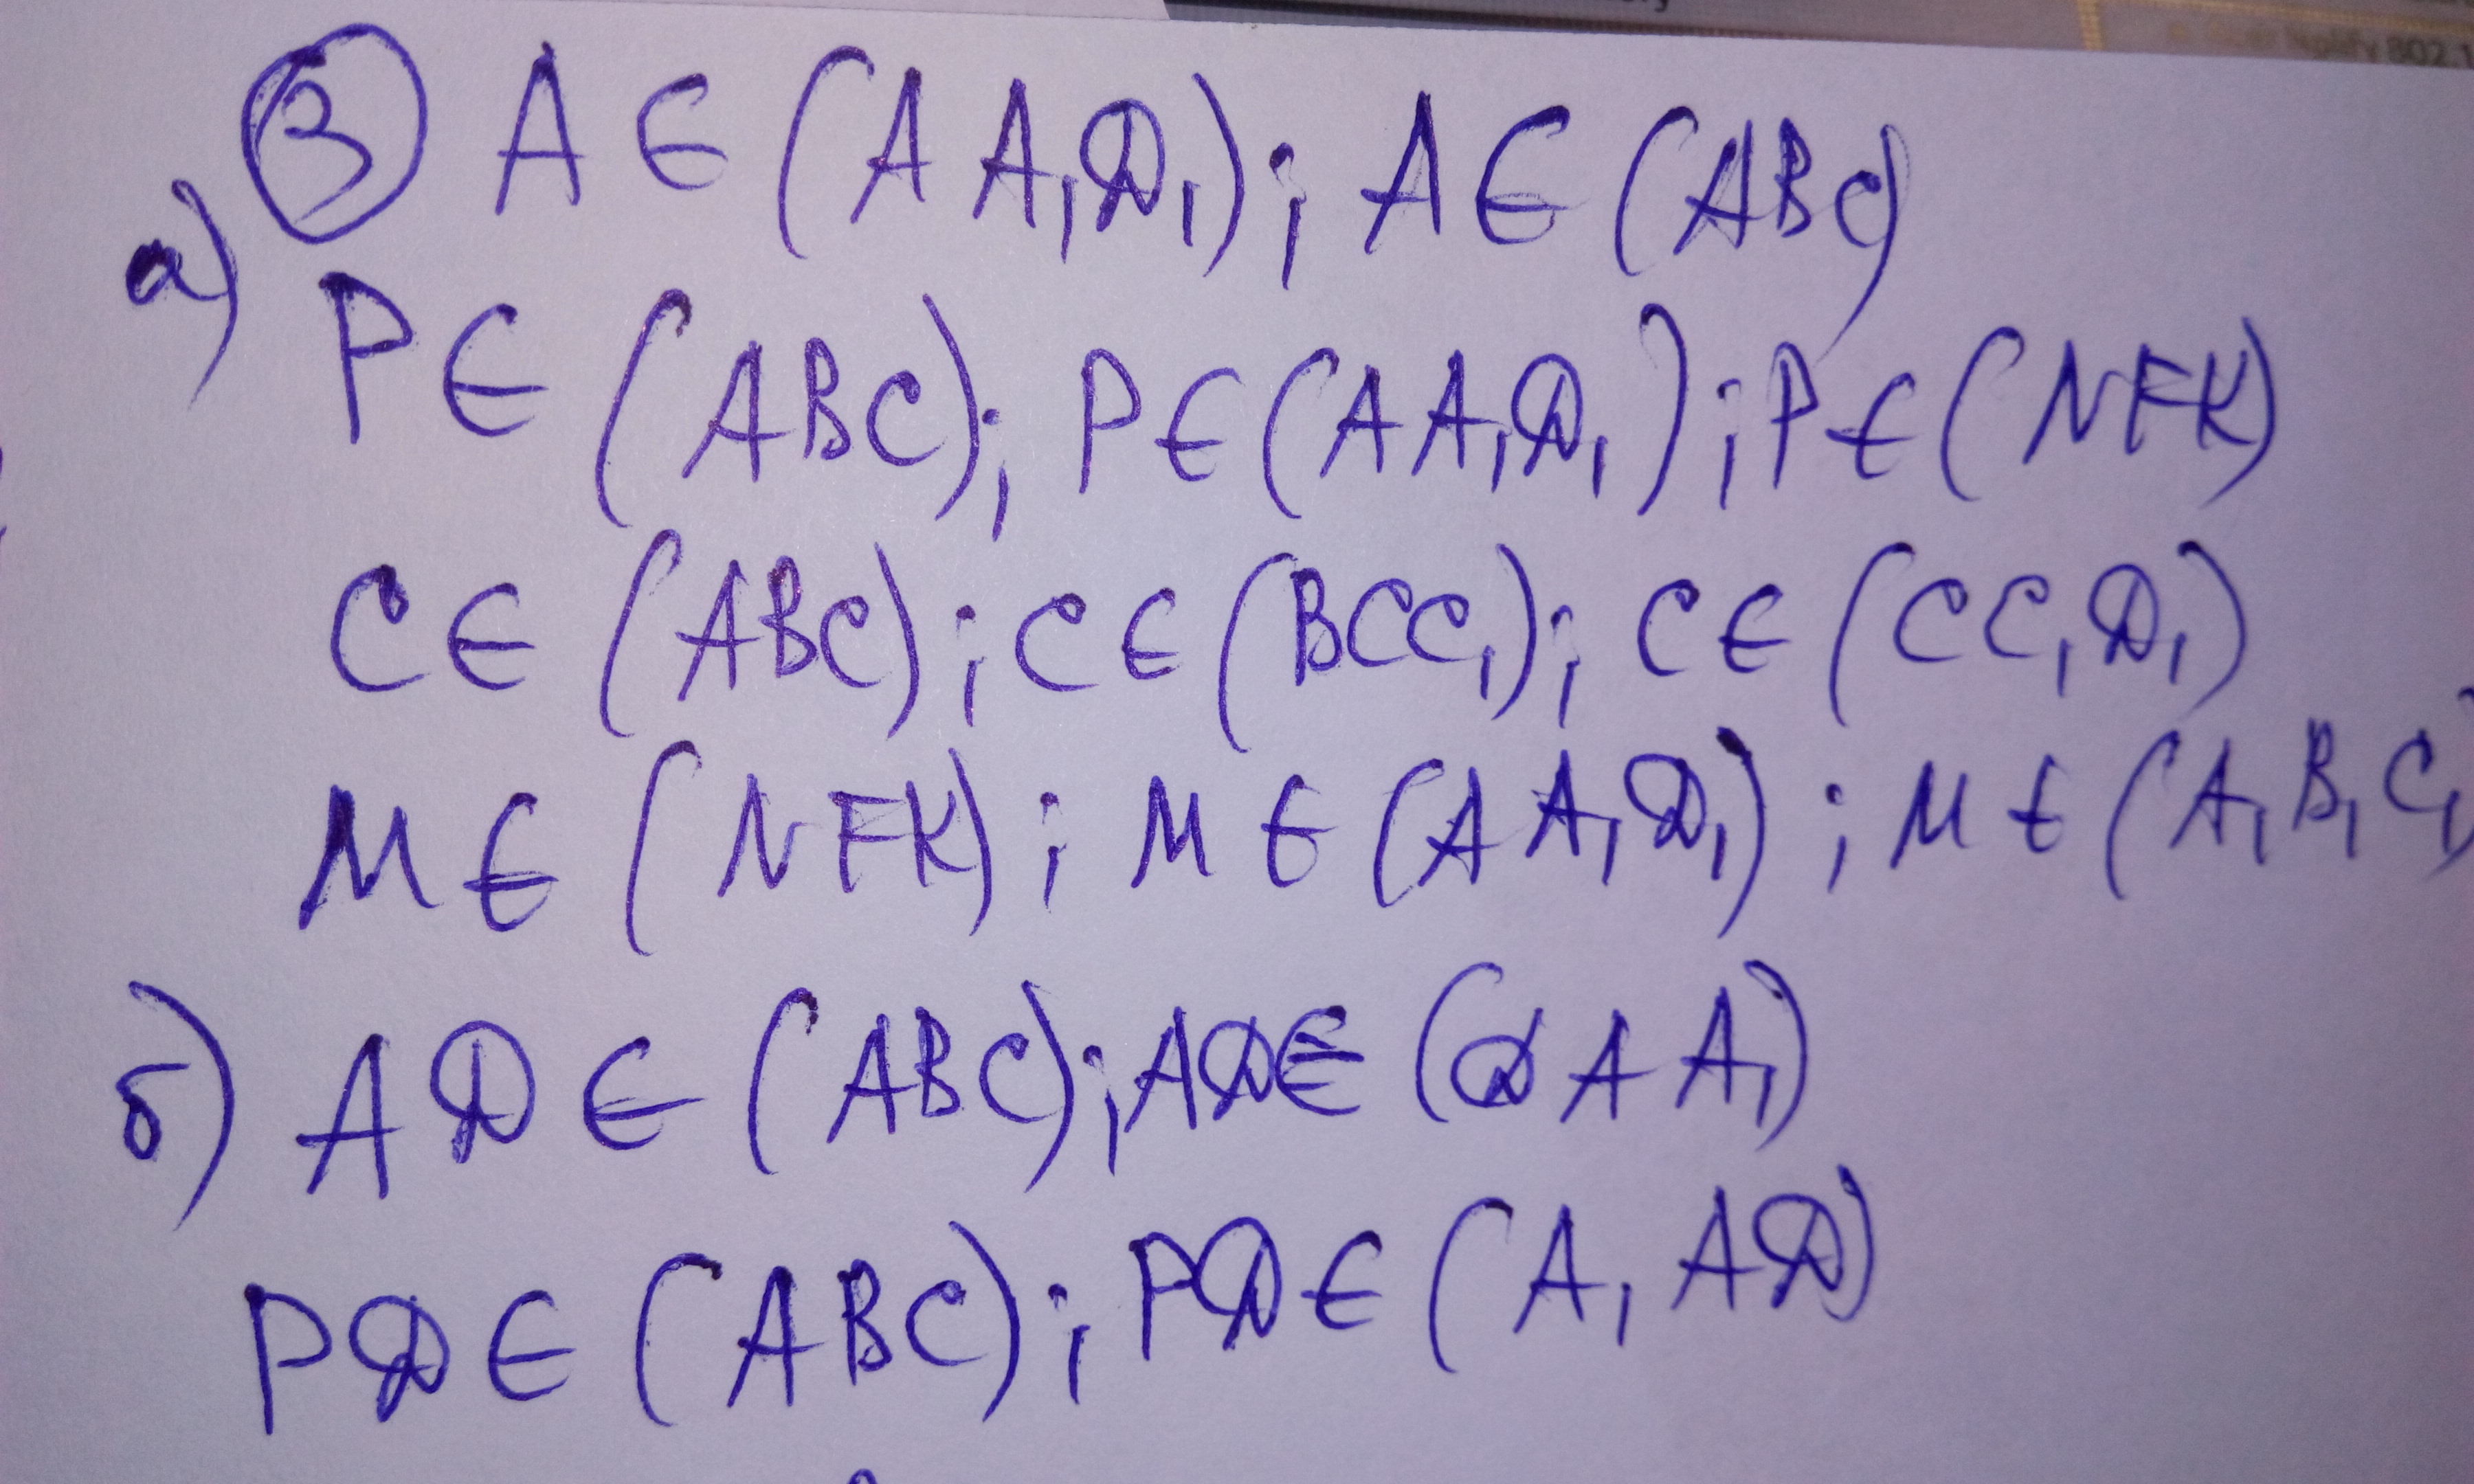 ③ A ∈ (AA₁D₁); A ∈ (ABC)
а)
P ∈ (ABC); P ∈ (AA₁D₁); P ∈ (NFK)
C ∈ (ABC); C ∈ (BCC₁); C ∈ (CC₁D₁)
M ∈ (NFK); M ∈ (AA₁D₁); M ∈ (A₁B₁C₁)
б) AD ∈ (ABC); AD ∈ (DAA₁)
PD ∈ (ABC); PD ∈ (A₁AD)